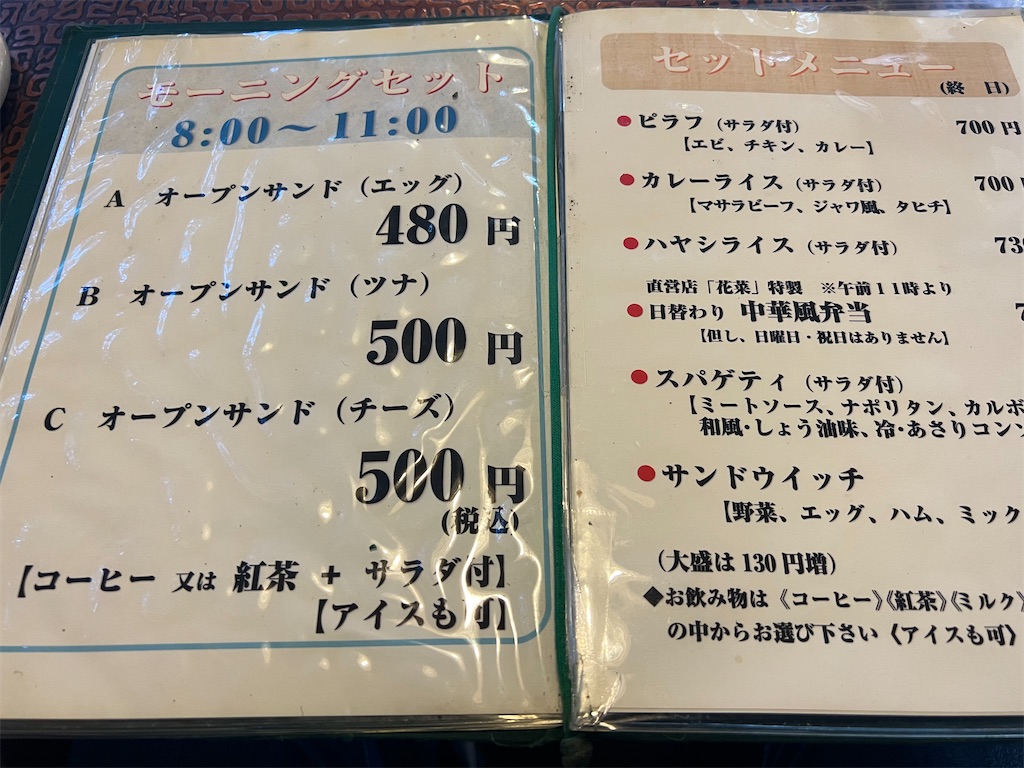 モーニングセット
8:00～11:00
A オープンサンド（エッグ）
480 円
B オープンサンド（ツナ）
500 円
C オープンサンド（チーズ）
500 円
(税込)
【コーヒー 又は 紅茶 + サラダ付】
【アイスも可】
セットメニュー
(終 日)
●ピラフ（サラダ付） 700 円
【エビ、チキン、カレー】
●カレーライス（サラダ付） 700
【マサラビーフ、ジャワ風、タヒチ】
●ハヤシライス（サラダ付）
直営店「花菜」特製 ※午前１１時より
●日替わり 中華風弁当
【但し、日曜日・祝日はありません】
●スパゲティ（サラダ付）
【ミートソース、ナポリタン、カルボ
和風・しょう油味、冷・あさりコンソ
●サンドウイッチ
【野菜、エッグ、ハム、ミック
（大盛は 130 円増）
◆お飲み物は《コーヒー》《紅茶》《ミルク》
の中からお選び下さい《アイスも可》